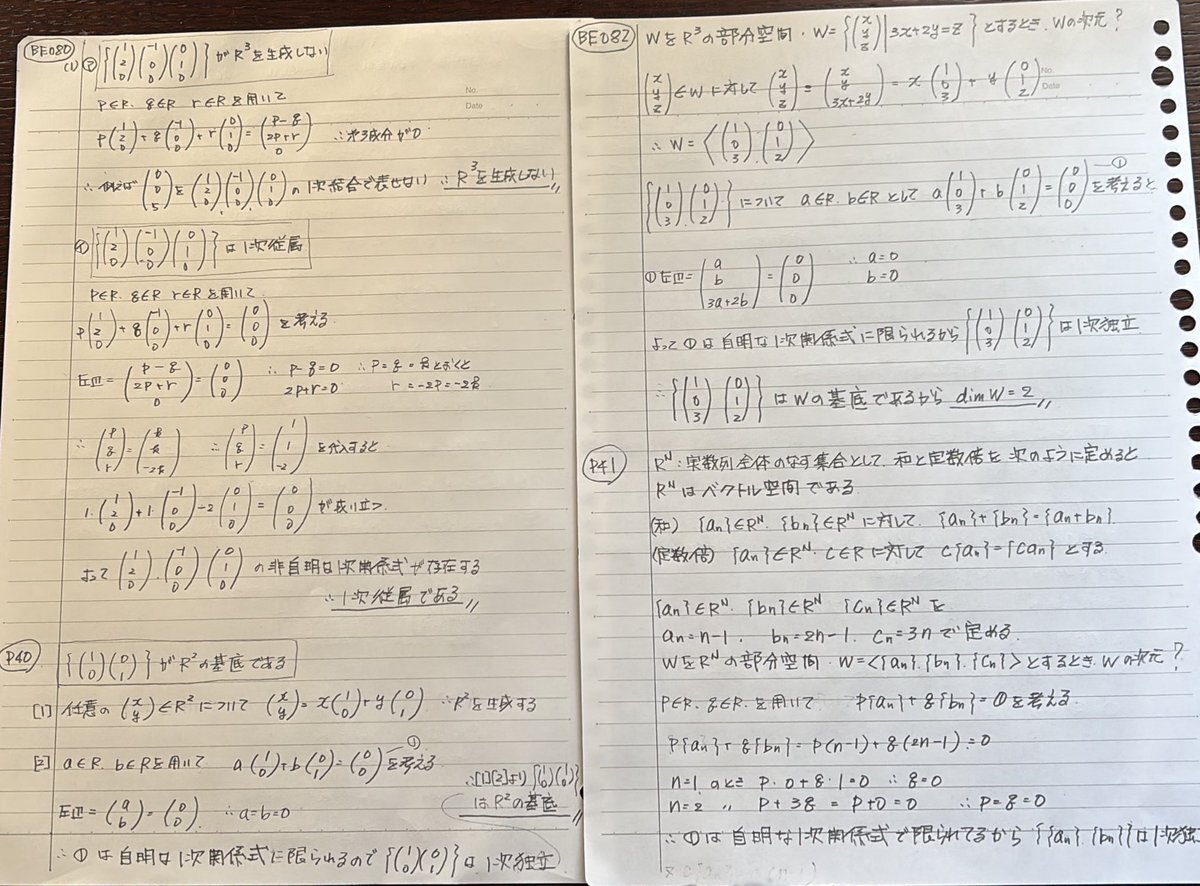 BE080
(1) ㋐ {(1 2 0) (-1 0 0) (0 1 0)} が R³を生成しない
P∈R. q∈R r∈R を用いて
P(1 2 0) + q(-1 0 0) + r(0 1 0) = (P-q 2P+r 0) ∴第3成分が0
∴ 例えば (0 0 5) を (1 2 0), (-1 0 0), (0 1 0) の1次結合で表せない ∴ R³を生成しない
㋑ {(1 2 0) (-1 0 -0) (0 1 0)} は1次従属
P∈R. q∈R r∈R を用いて
P(1 2 0) + q(-1 0 0) + r(0 1 0) = (0 0 0) を考える
左辺 = (P-q 2P+r 0) = (0 0 0) ∴ P-q=0 2P+r=0 ∴ P=q=k とおくと r=-2P=-2k
∴ (P q r) = (k k -2k) ∴ (P q r) = (1 1 -2) を代入すると
1・(1 2 0) + 1・(-1 0 0) -2(0 1 0) = (0 0 0) が成り立つ
よって (1 2 0), (-1 0 0) (0 1 0) の非自明な1次関係式が存在する
∴ 1次従属である
P40
{(1 0) (0 1)} が R²の基底である
[1] 任意の (x y)∈R² について (x y) = x(1 0) + y(0 1) ∴R²を生成する
[2] a∈R. b∈R を用いて a(1 0) + b(0 1) = (0 0) ① を考える
左辺 = (a b) = (0 0). ∴a=b=0
∴ ①は自明な1次関係式に限られるので {(1 0)(0 1)} は1次独立
∴[1][2]より
はR²の基底
BE082
WをR³の部分空間. W = {(x y z) | 3x+2y=z} とするとき. Wの次元?
(x y z)∈W に対して (x y z) = (x y 3x+2y) = x(1 0 3) + y(0 1 2)
∴ W = 〈(1 0 3), (0 1 2)〉
{(1 0 3), (0 1 2)} について a∈R. b∈R として a(1 0 3) + b(0 1 2) = (0 0 0) ① を考えると
①左辺 = (a b 3a+2b) = (0 0 0) ∴ a=0 b=0
よって ①は自明な1次関係式に限られるから {(1 0 3) (0 1 2)} は1次独立
∴ {(1 0 3) (0 1 2)} はWの基底であるから dim W = 2
P41
Rᴺ:実数列全体のなす集合として. 和と定数倍を次のように定めると
Rᴺはベクトル空間である
(和) {an}∈Rᴺ. {bn}∈Rᴺ に対して. {an}+{bn}={an+bn}.
(定数倍) {an}∈Rᴺ. C∈R に対して C{an}={Can} とする.
{an}∈Rᴺ. {bn}∈Rᴺ {Cn}∈Rᴺ を
an=n-1. bn=2n-1. Cn=3n で定める.
WをRᴺの部分空間. W=〈{an}.{bn}.{Cn}〉とするとき. Wの次元?
P∈R. q∈R. を用いて P{an}+q{bn}= ① を考える
P{an}+q{bn}=P(n-1)+q(2n-1)=0
n=1 のとき P・0+q・1=0 ∴ q=0
n=2 〃 P+3q=P+0=0 ∴P=q=0
∴ ①は自明な1次関係式で限られてるから {{an} {bn}}は1次独